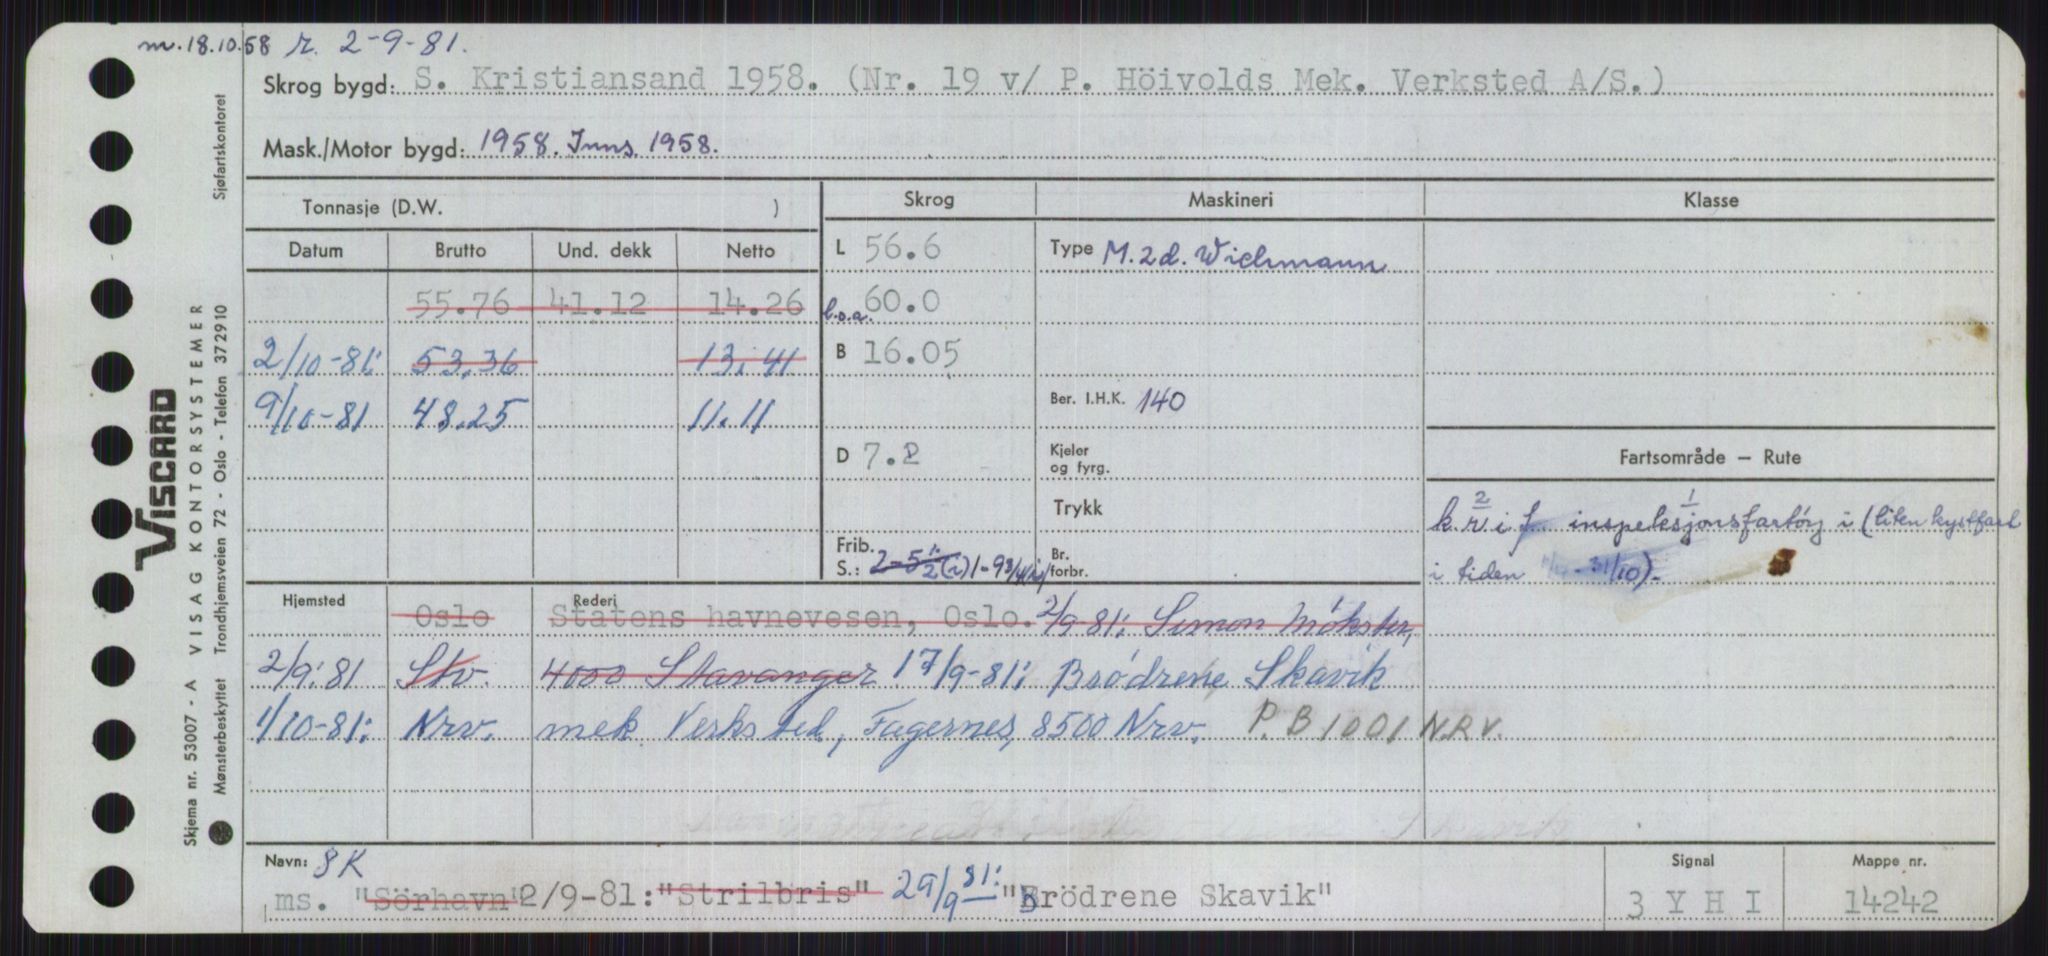 m. 18.10.58 r. 2-9-81.
Skrog bygd: S. Kristiansand 1958. (Nr. 19 v/ P. Höivolds Mek. Verksted A/S.)
Mask./Motor bygd: 1958. Inns. 1958.
Tonnasje (D.W. ) Skrog Maskineri Klasse
Datum Brutto Und. dekk Netto L 56.6 Type M. 2 d. Wichmann
55.76 41.12 14.26 l.o.a. 60.0
2/10-81: 53,36 13.41 B 16.05
9/10-81 48.25 11.11 Ber. I.H.K. 140
D 7.2 Kjeler og fyrg. Fartsområde — Rute
Trykk k r 2 i f inspeksjonsfartöy 1 i (liten kystfart
Frib. S.: 2-5 1/2 (i) 1-9 3/4 (i) Br. forbr. i tiden - 31/10).
Hjemsted Rederi
Oslo Statens havnevesen, Oslo. 2/9-81: Simon Mökster,
2/9-81 Stv. 4000 Stavanger 17/9-81: Brödrene Skavik
1/10-81: Nrv. mek. Verksted, Fagernes, 8500 Nrv. P.B 1001 NRV.
Navn: SK Signal Mappe nr.
ms. "Sörhavn" 2/9-81: "Strilbris" 29/9 81: "Brödrene Skavik" 3 Y H I 14242
Sjøfartskontoret
VISCARD
VISAG KONTORSYSTEMER
Skjema nr. 53007 - A
Mønsterbeskyttet Trondhjemsveien 72 - Oslo - Telefon 372910